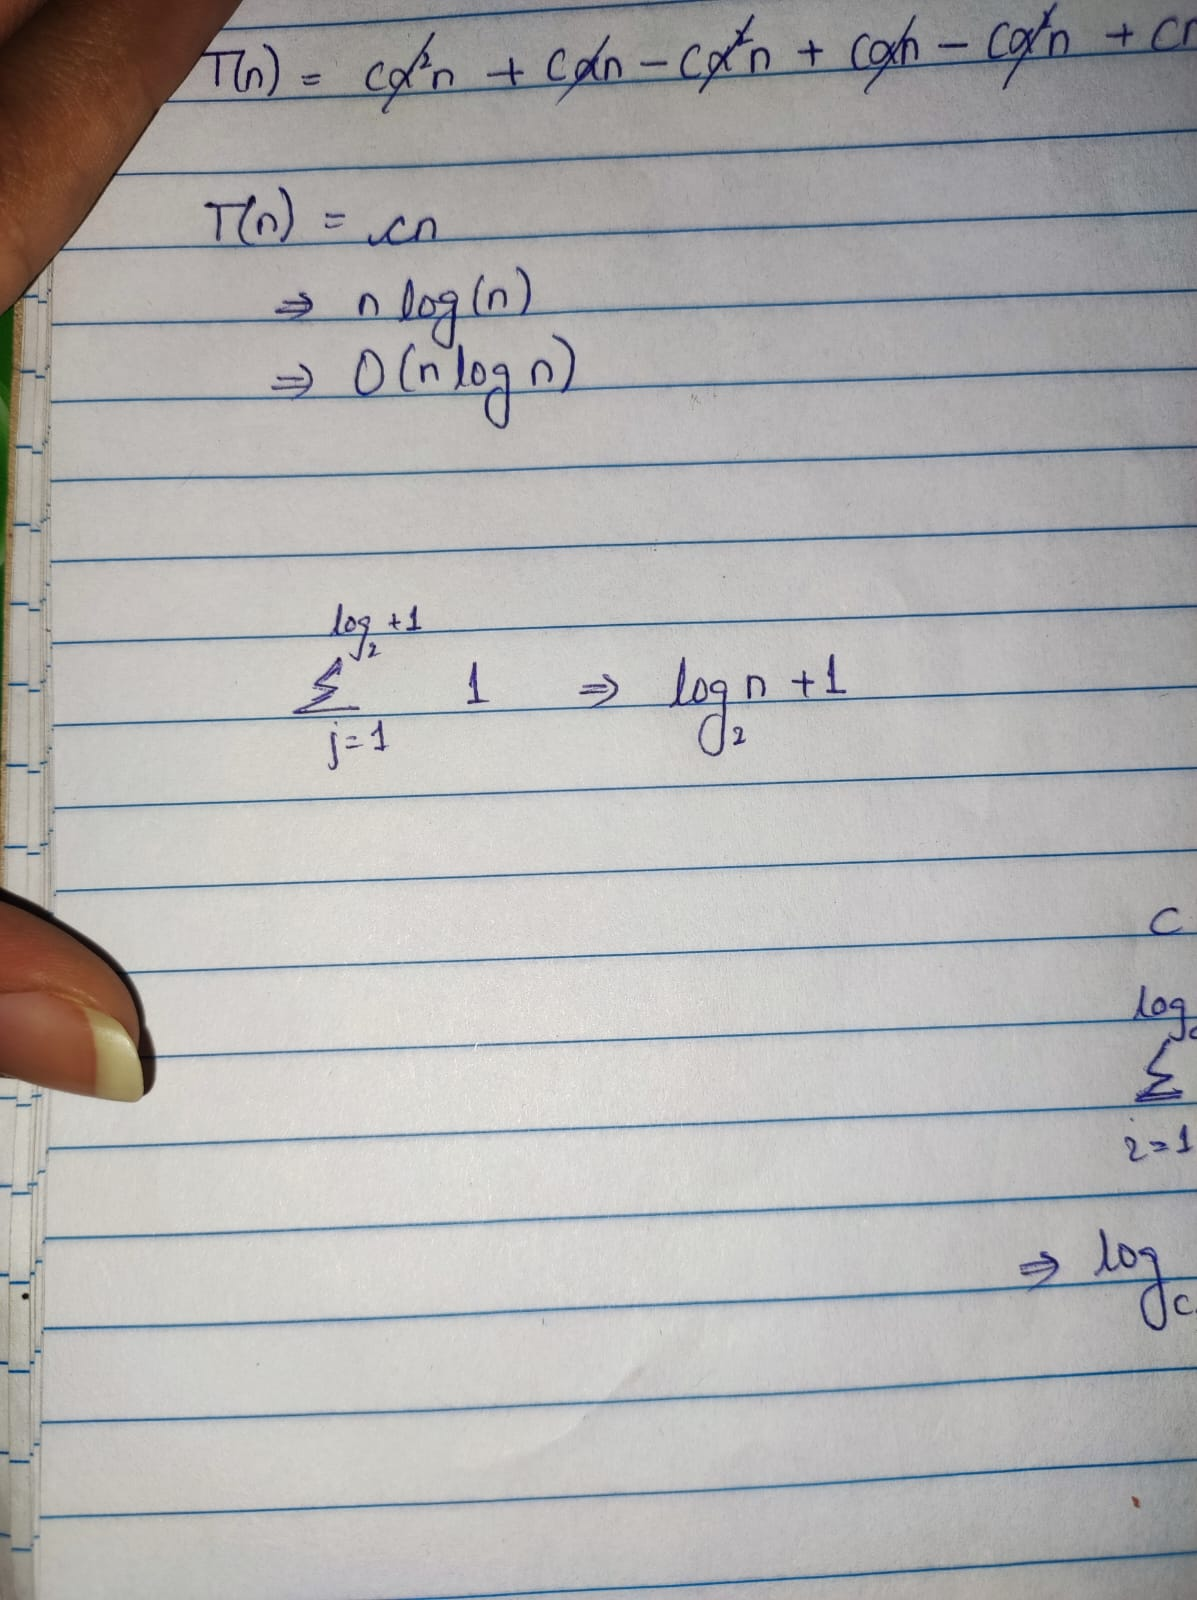 T(n) = cα²n + cαn - cα²n + cαn - cα²n + cn
T(n) = cn
⇒ n log(n)
⇒ O(n log n)
log₂ +1
Σ 1 ⇒ log₂ n +1
j=1
c
log c
Σ
i=1
⇒ log c